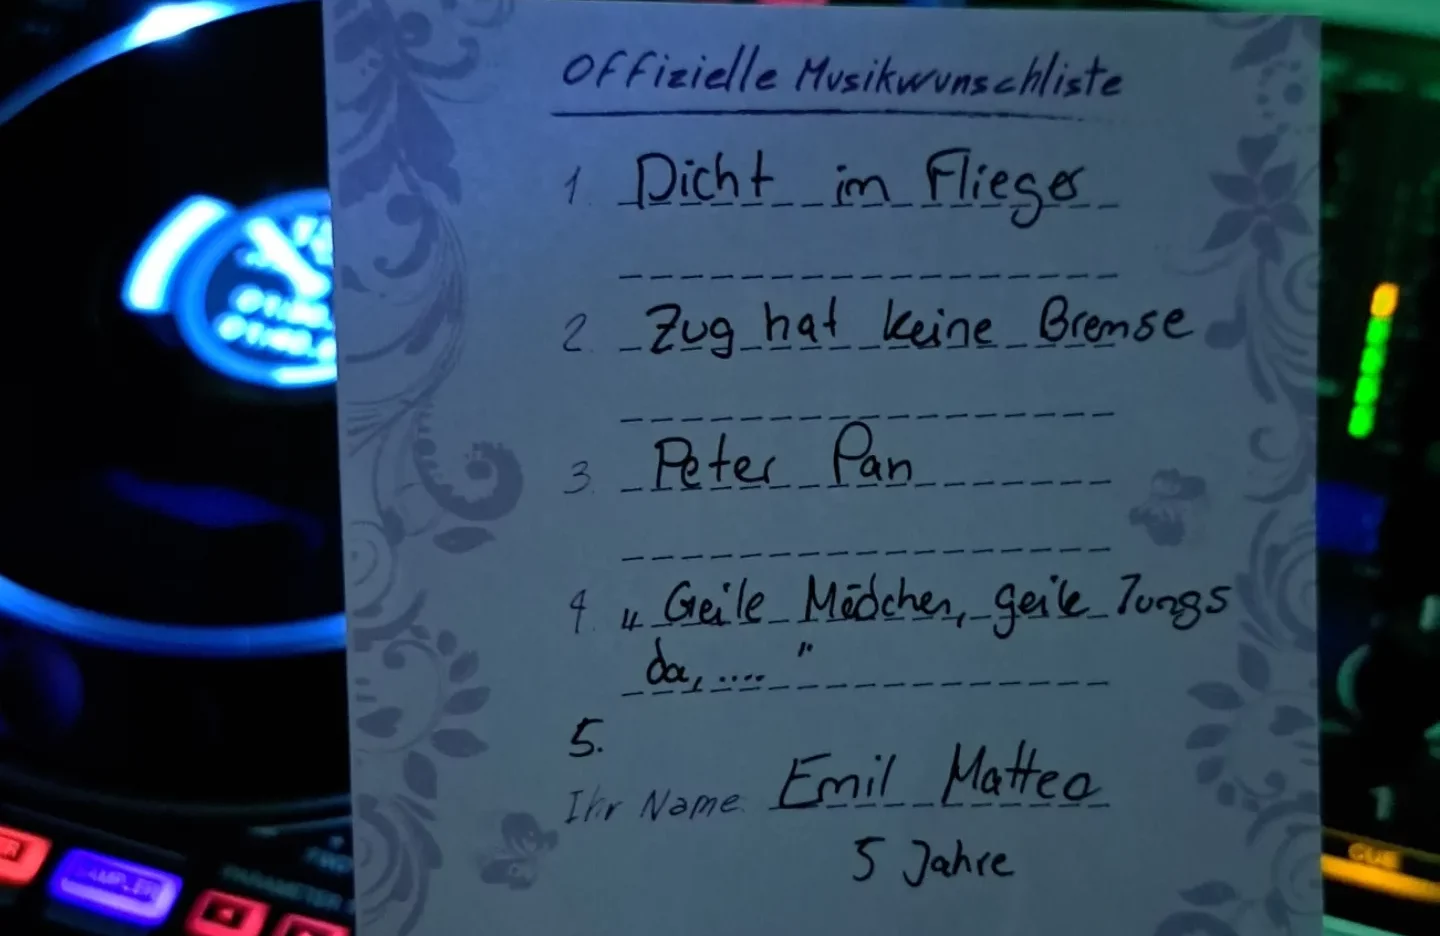 Offizielle Musikwunschliste
1. Dicht im Flieger
2. Zug hat keine Bremse
3. Peter Pan
4. „Geile Mädchen, geile Jungs
da, ...."
5.
Ihr Name: Emil Matteo
5 Jahre
SAMPLER
PARAMETER
CUE